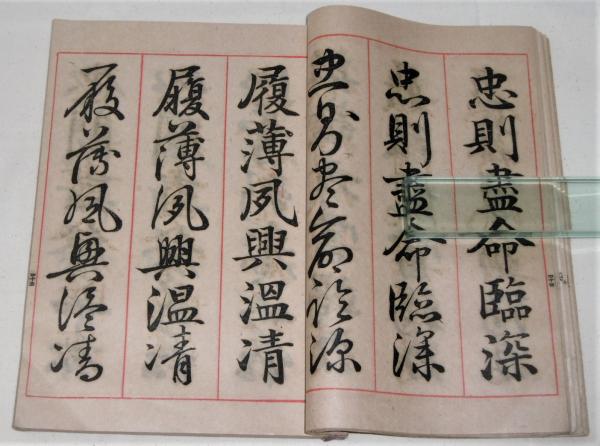 忠則盡命臨深
忠則盡命臨深
忠則盡命臨深
履薄夙興溫凊
履薄夙興温凊
履薄夙興温凊